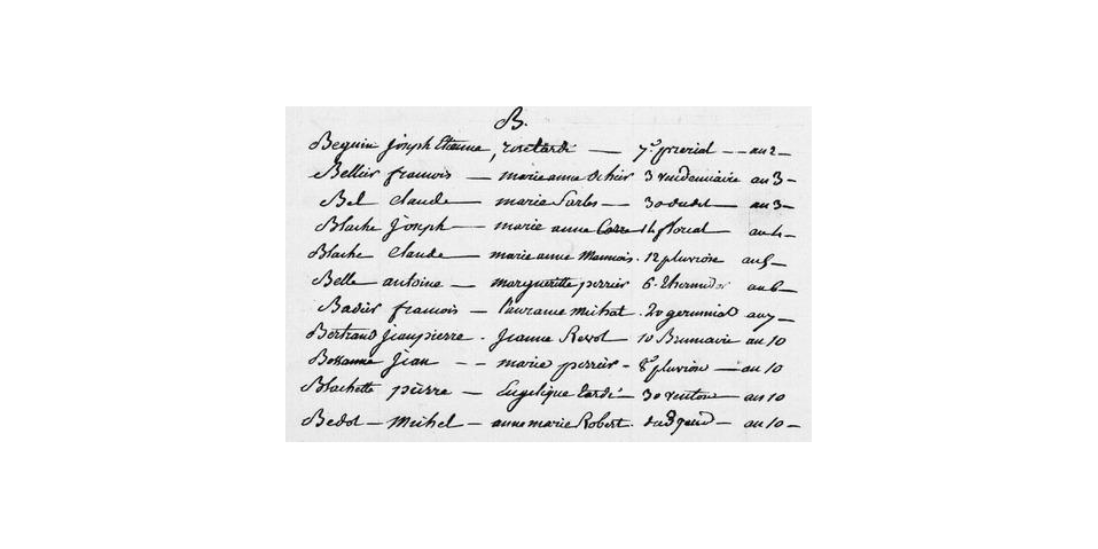 B.
Beguin joseph Etienne, — 7e prerial -- an 2 —
Bellier francois — marie anne 3 vendemiaire an 3 —
Bel claude — marie — 30 dudit — an 3 —
Blache joseph — marie anne Carre 14 florial — an 4 —
Blache claude — marie anne . 12 pluviose an 5 —
Belle antoine — margueritte perrier 6 . thermidor an 6 —
Badier francois — michat . 20 germinal an 7 —
Bertrand jeanpierre . jeanne Revol 10 Brumaire an 10
jean -- marie perrier - 8e pluviose — an 10
Blachette pierre — Engelique tardi 30 ventose — an 10
Bedot — michel — anne marie Robert . — an 10 —